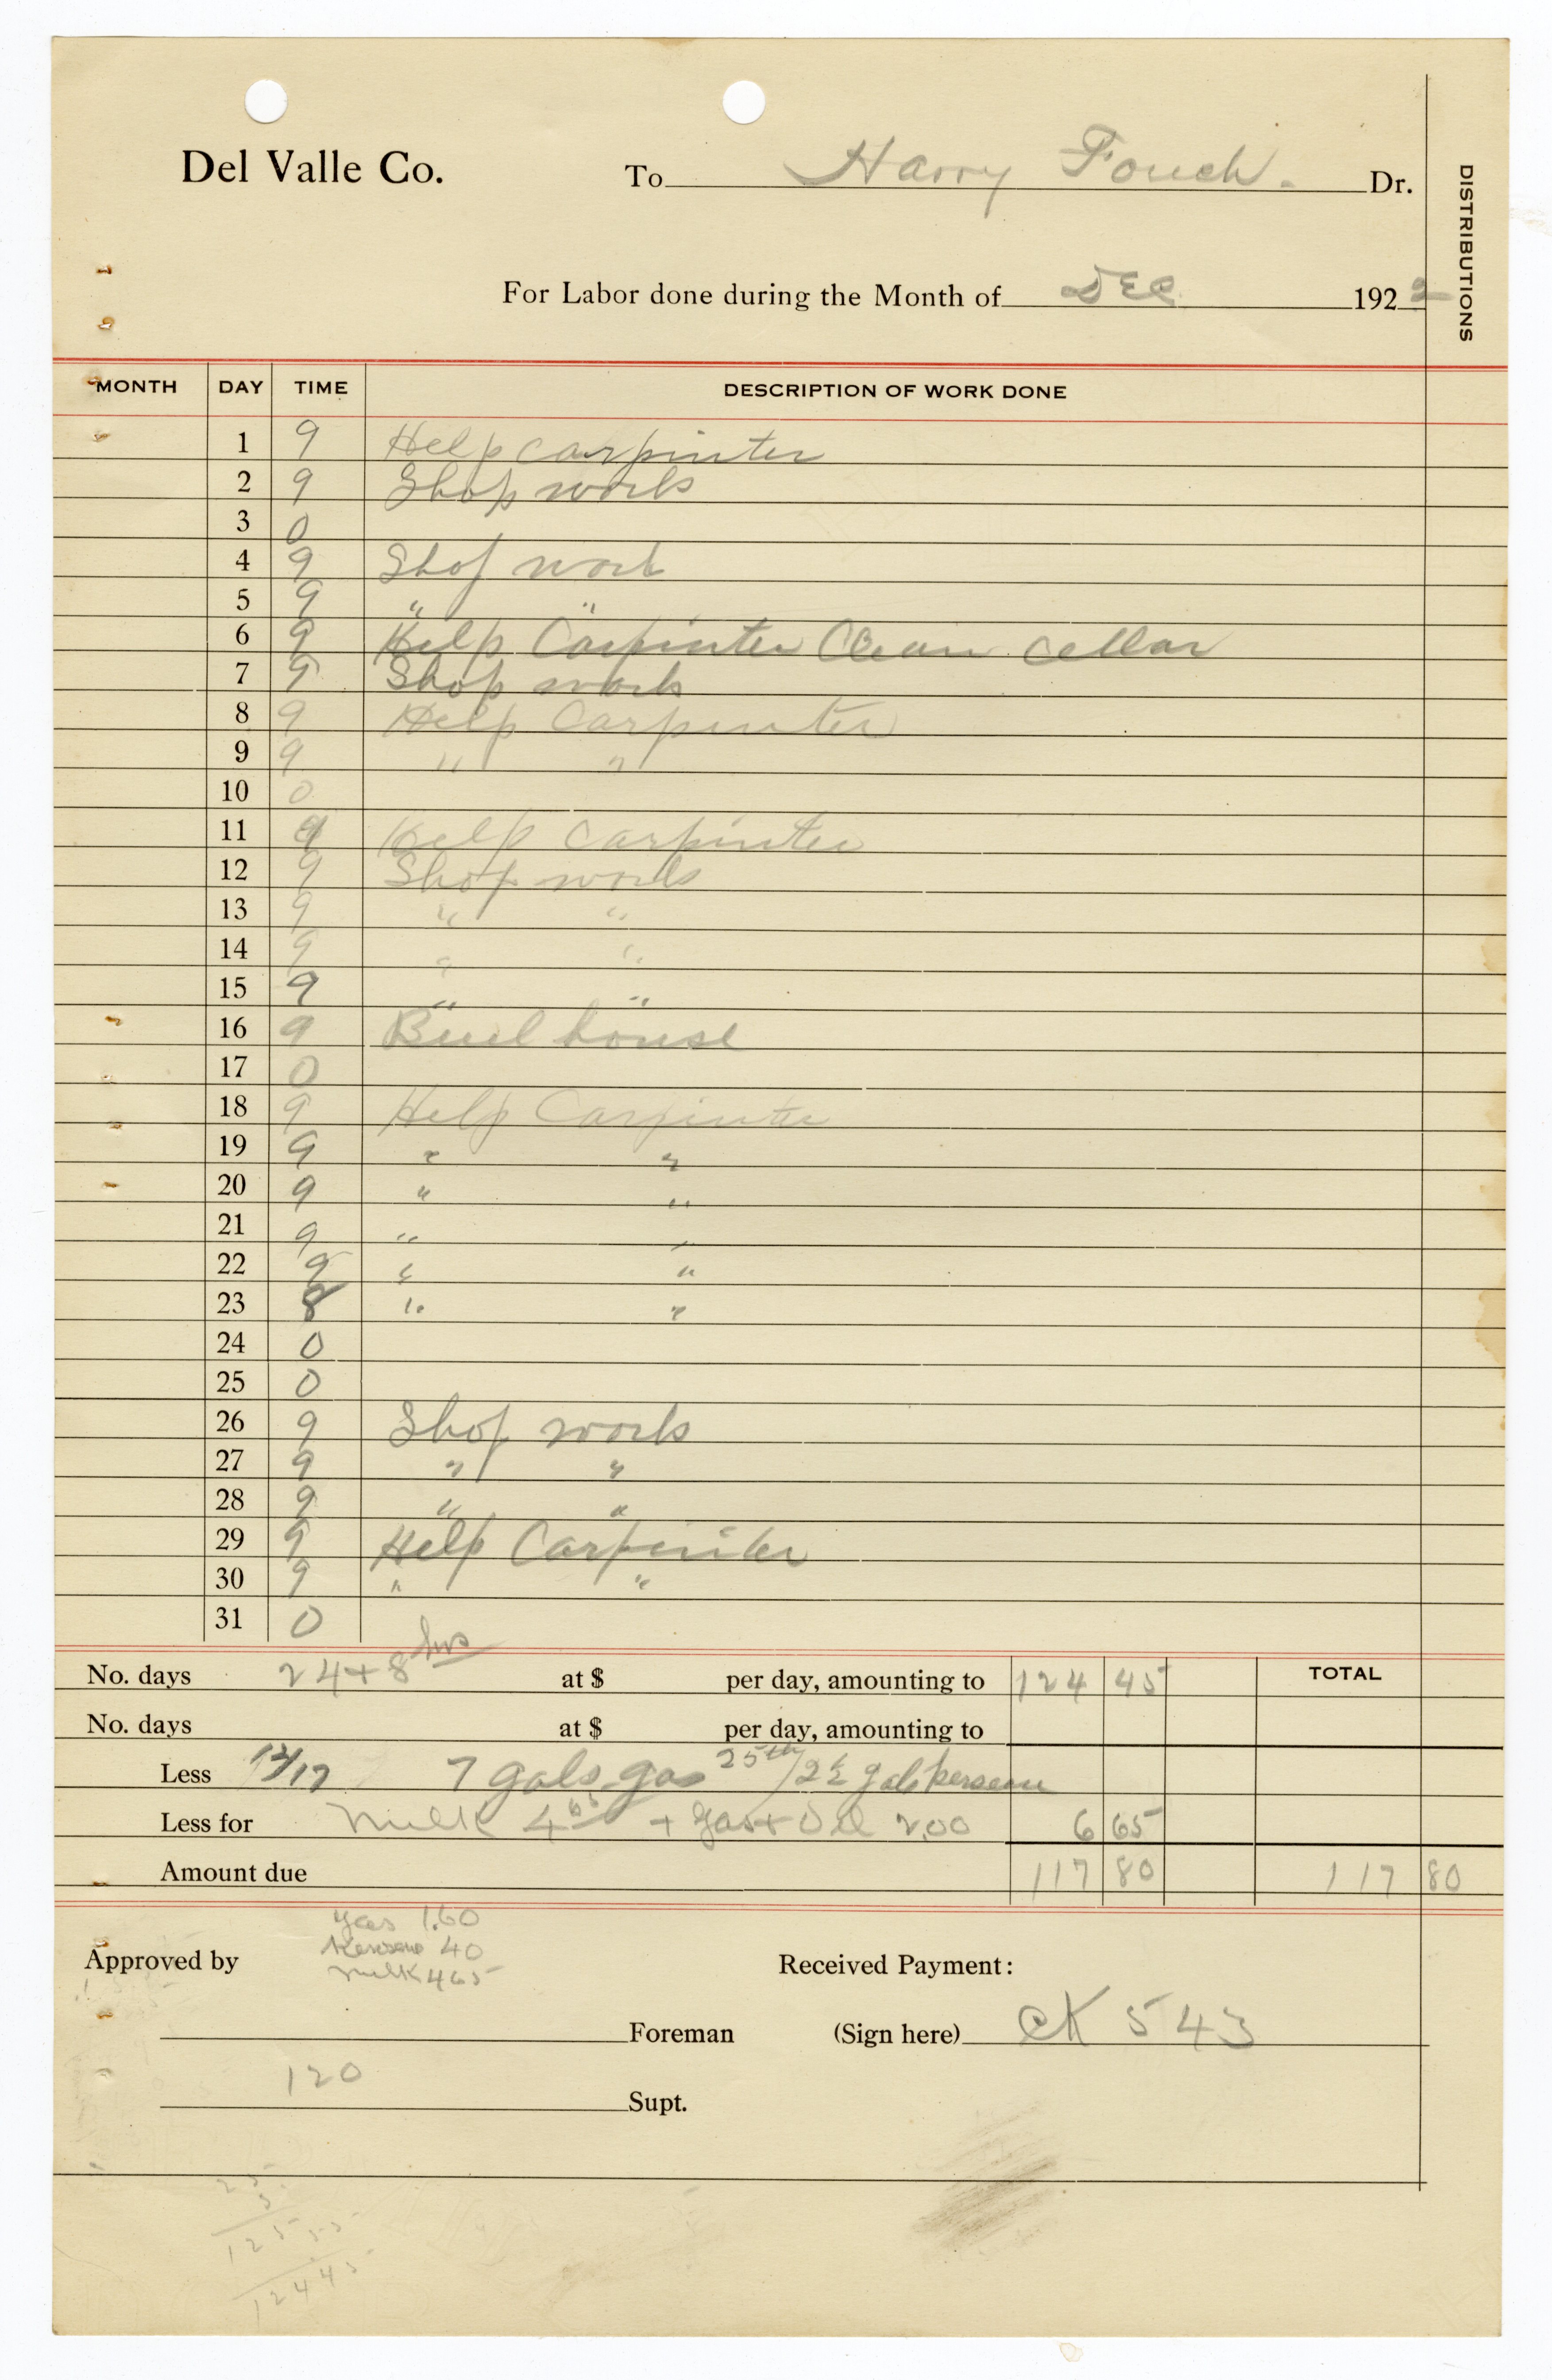 Del Valle Co. To Harry Fouch. Dr.
DISTRIBUTIONS
For Labor done during the Month of Dec 1922
MONTH DAY TIME DESCRIPTION OF WORK DONE
1 9 Help carpinter
2 9 Shop work
3 0
4 9 Shop work
5 9 " "
6 9 Help Carpinter Clean cellar
7 9 Shop work
8 9 Help Carpinter
9 9 " "
10 0
11 9 Help carpinter
12 9 Shop work
13 9 " "
14 9 " "
15 9 " "
16 9 house
17 0
18 9 Help Carpinter
19 9 " "
20 9 " "
21 9 " "
22 9 " "
23 8 " "
24 0
25 0
26 9 Shop work
27 9 " "
28 9 " "
29 9 Help Carpinter
30 9 " "
31 0
No. days 24 + 8 hrs at $ per day, amounting to 124 45 TOTAL
No. days at $ per day, amounting to
Less 12/17 7 gals. gas 25th/2½ gal kersean
Less for Milk 4 65 + gas + Oil 2.00 6 65
Amount due 117 80 117 80
gas 1.60
Approved by Kerosene 40 Received Payment:
milk 465
Foreman (Sign here) CK 543
120
Supt.
25
5
125 55
124 45